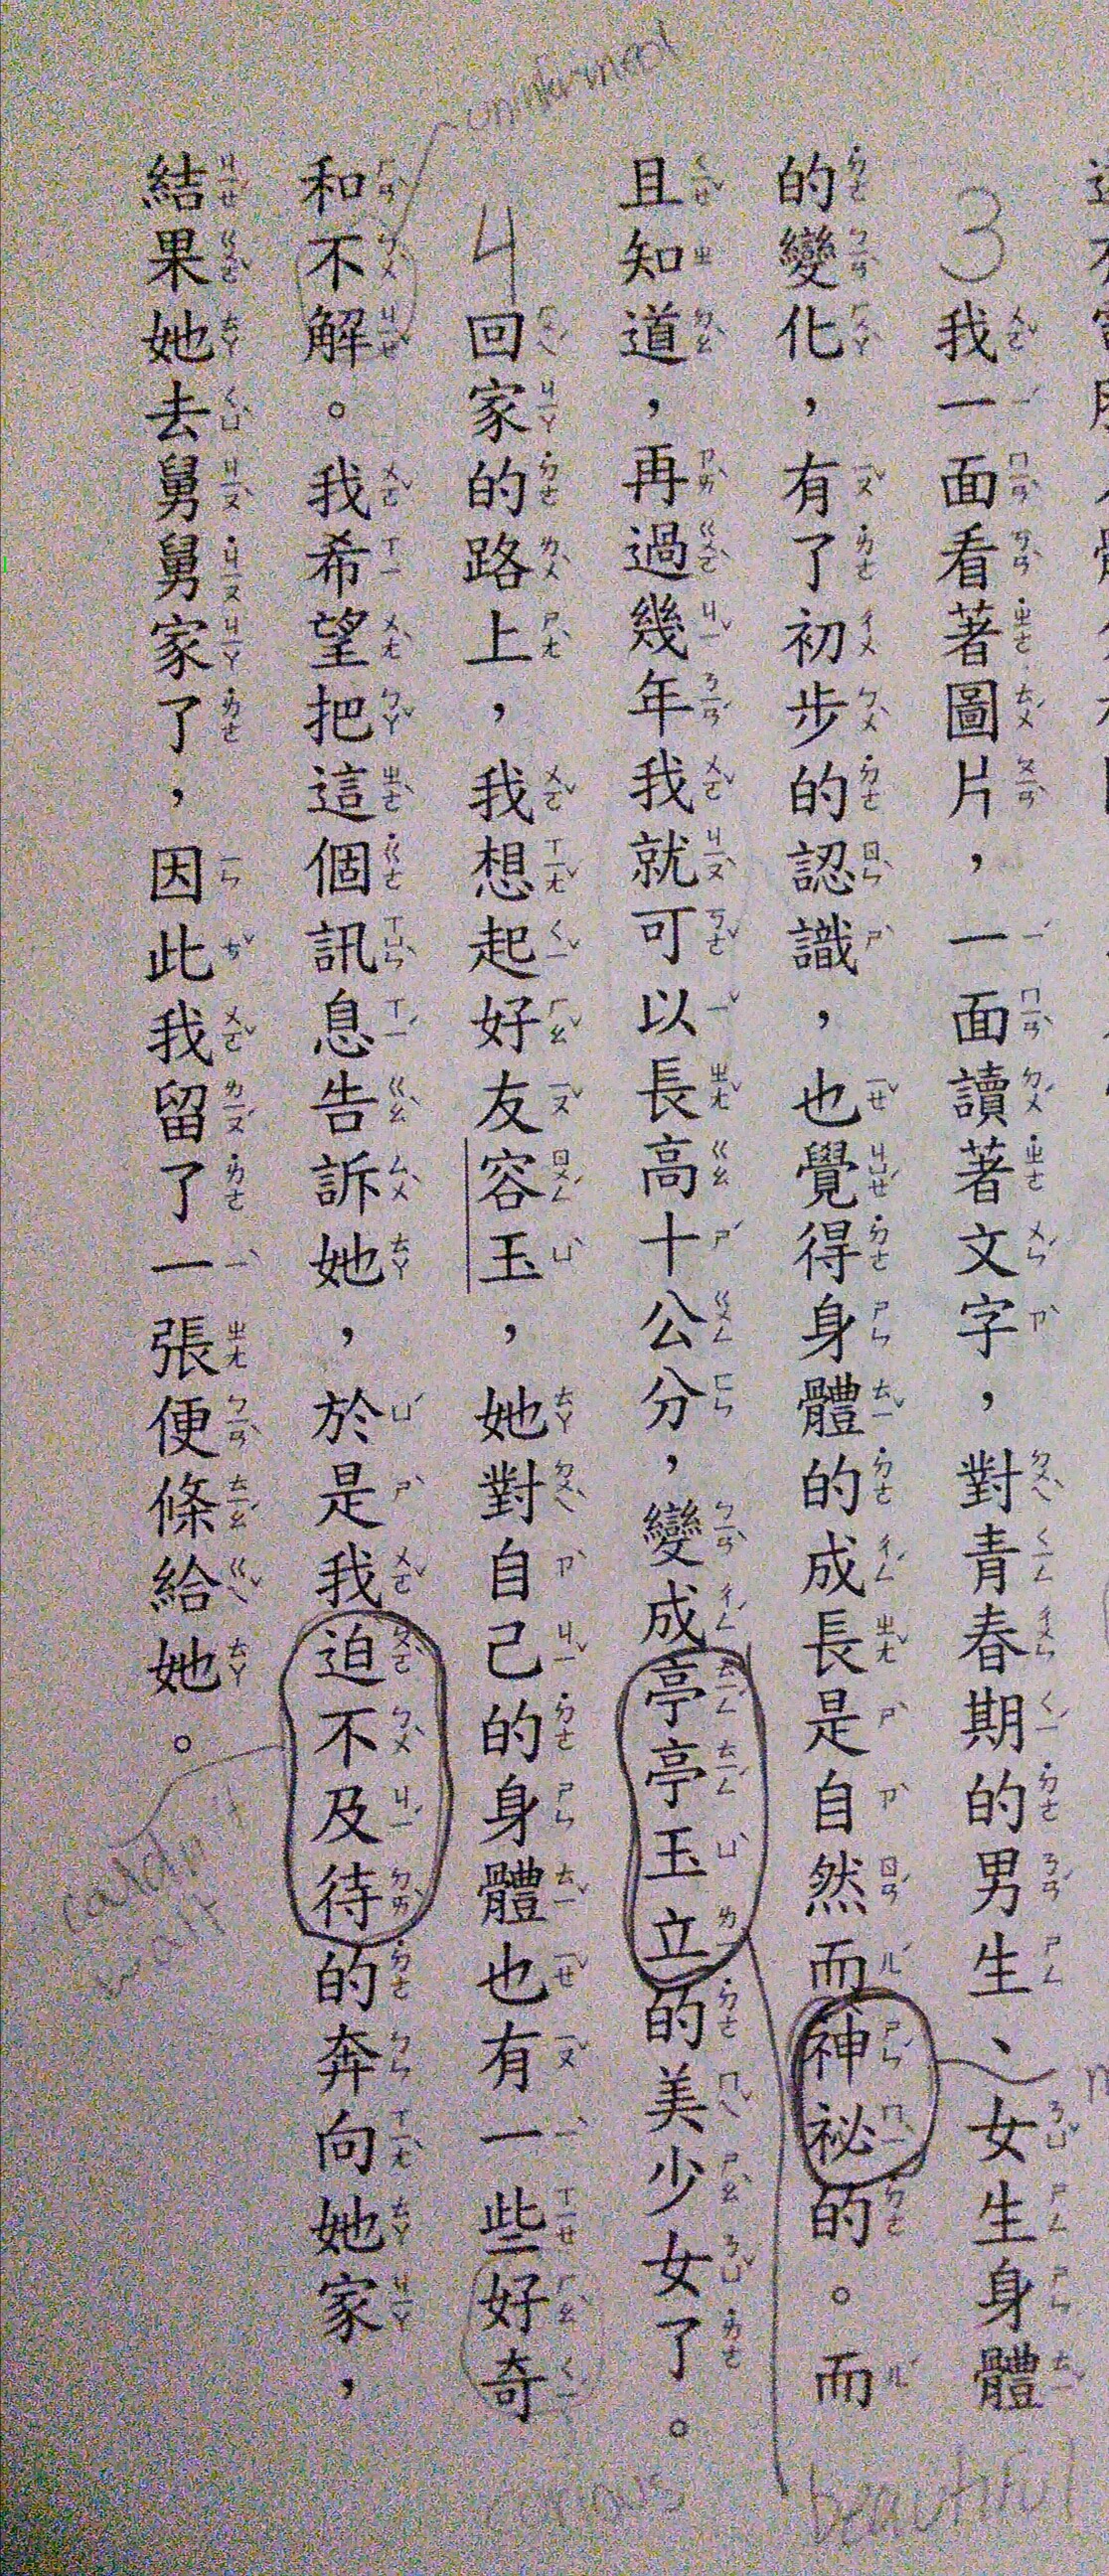 我一面看著圖片，一面讀著文字，對青春期的男生、女生身體
的變化，有了初步的認識，也覺得身體的成長是自然而神祕的。而
且知道，再過幾年我就可以長高十公分，變成亭亭玉立的美少女了。
回家的路上，我想起好友容玉，她對自己的身體也有一些好奇
和不解。我希望把這個訊息告訴她，於是我迫不及待的奔向她家，
結果她去舅舅家了，因此我留了一張便條給她。
3
4
beautiful